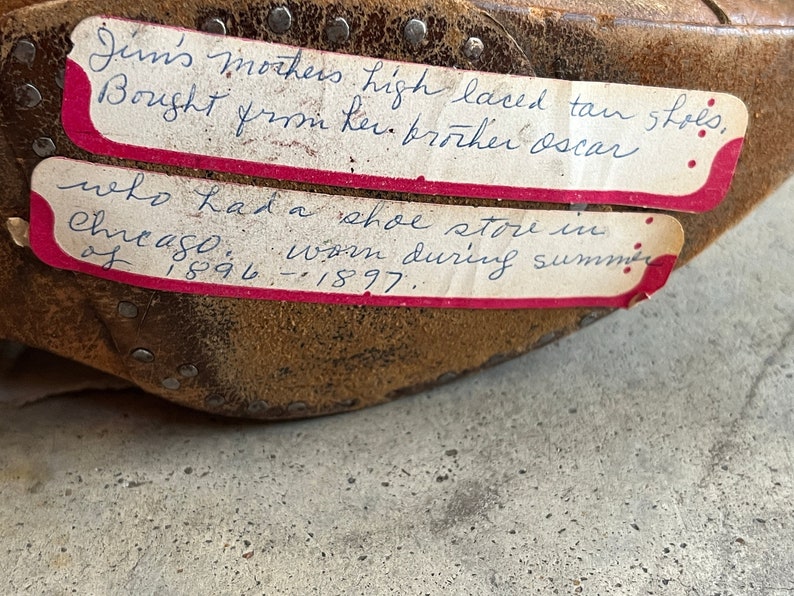 Jim's mothers high laced tan shoes.
Bought from her brother Oscar
who had a shoe store in
Chicago. worn during summer
of 1896.-1897.